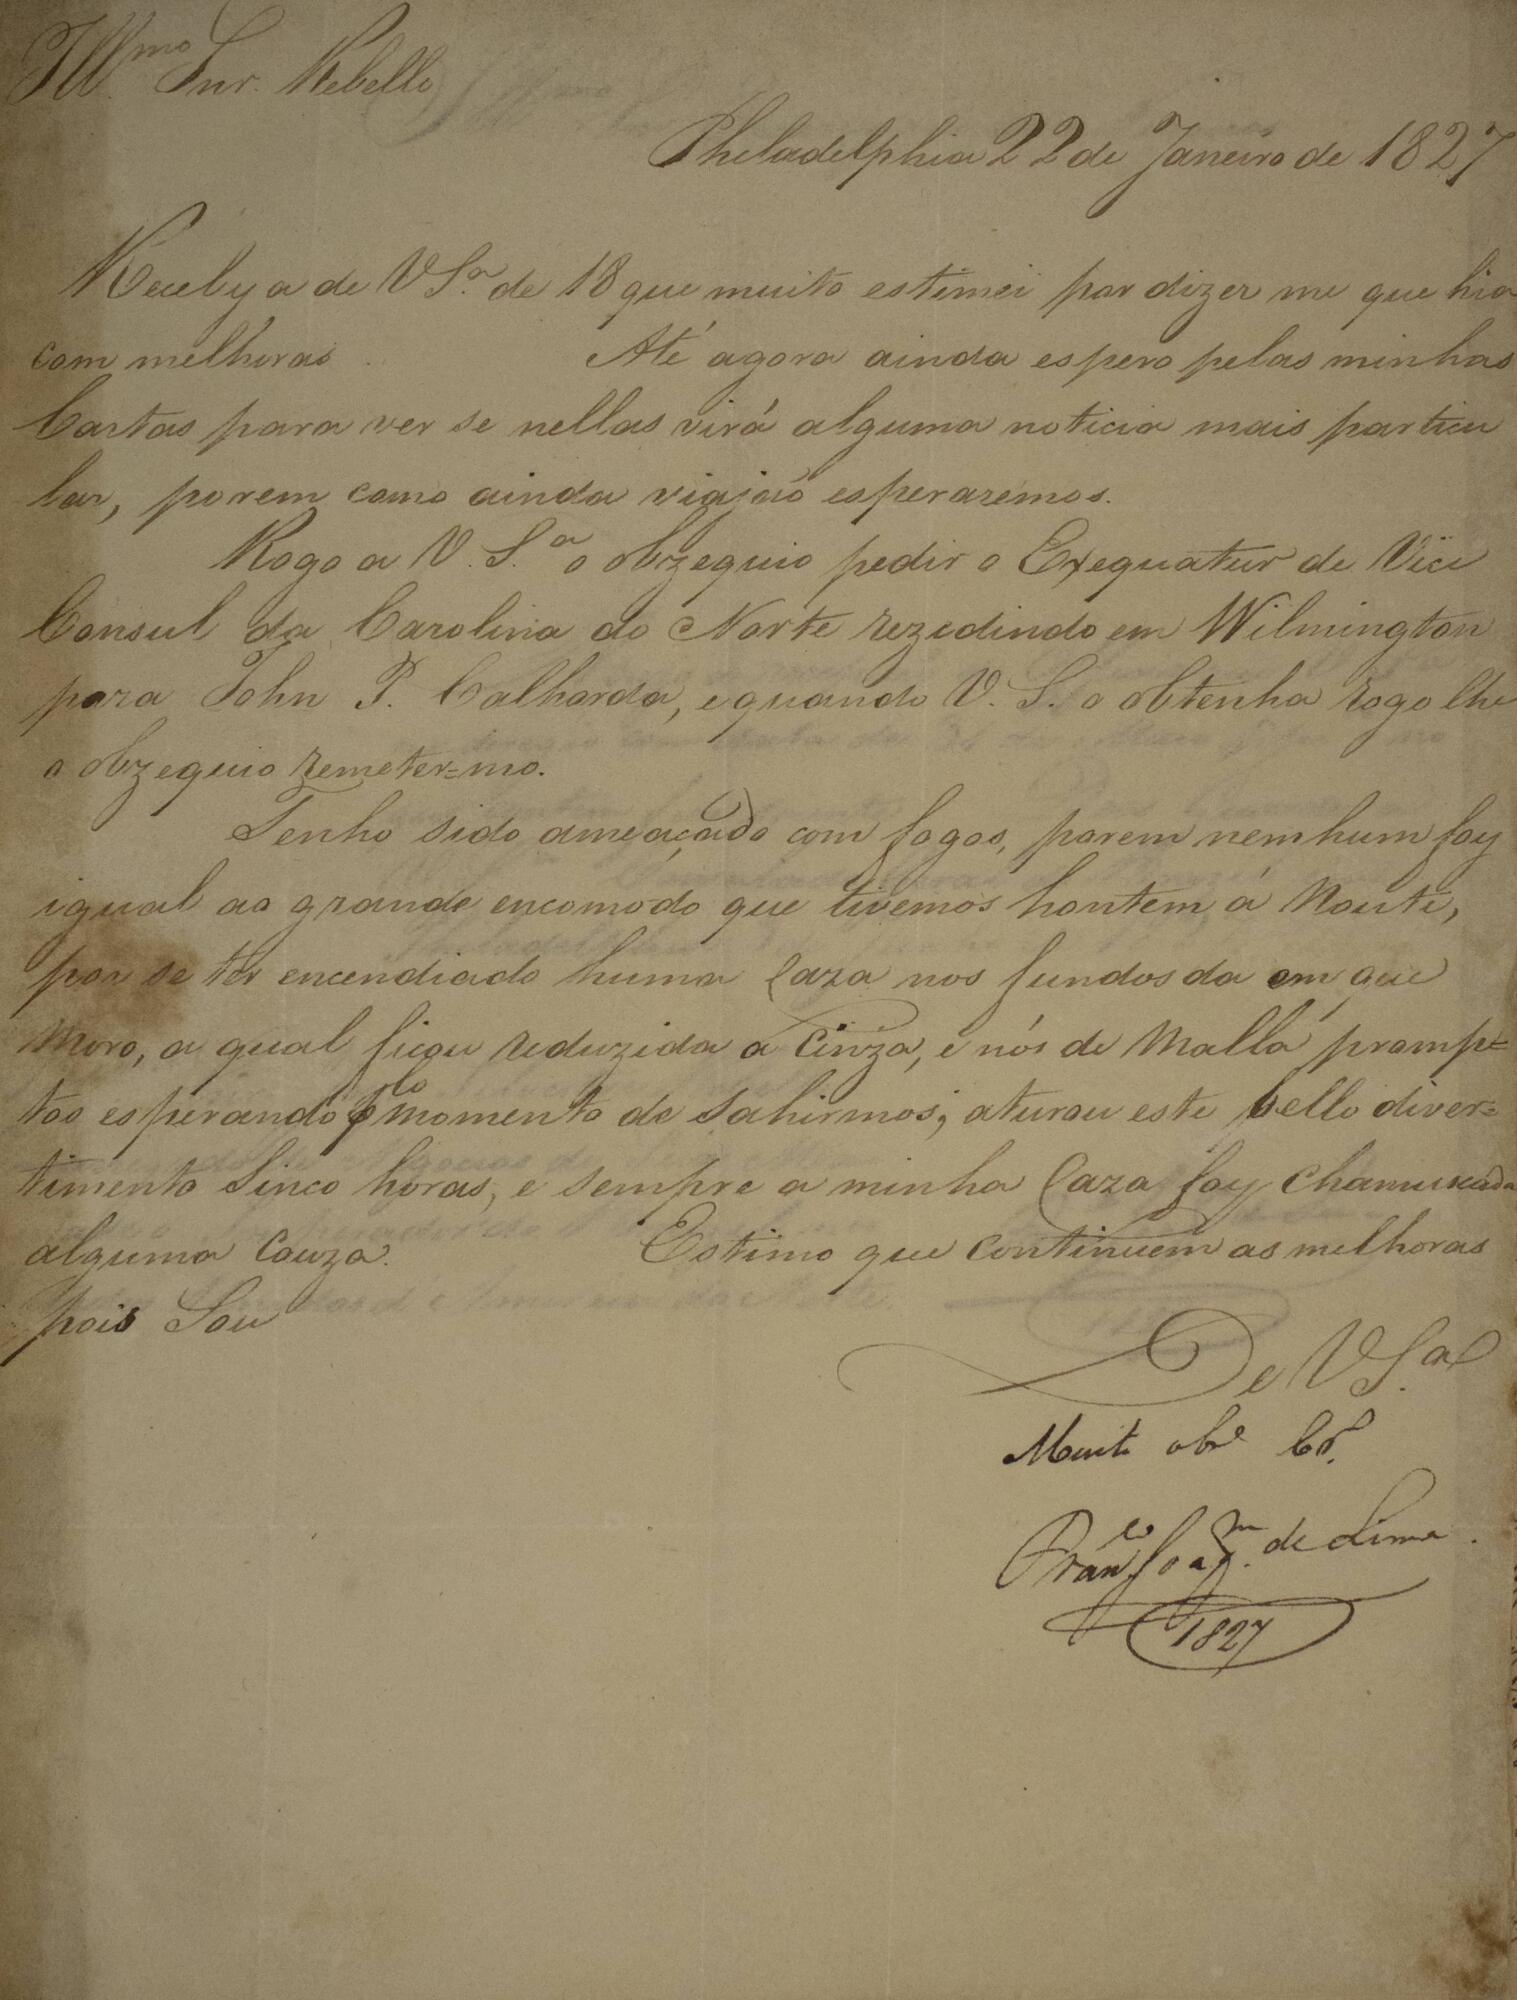 Ill.mo Snr. Rebello
Pheladelphia 22 de Janeiro de 1827
Receby a de V S.a de 18 que muito estimei por dizer me que hia
com melhoras. Até agora ainda espero pelas minhas
Cartas para ver se nellas virá alguma noticia mais particu
lar, porem como ainda viajão esperaremos.
Rogo a V. S.a o obzequio pedir o Exequatur de Vice
Consul da Carolina do Norte rezedindo em Wilmington
para John P. Calhorda, e quando V. S. o obtenha rogo lhe
o obzequio remeter=mo.
Tenho sido ameaçado com fogos, porem nemhum foy
igual ao grande encomodo que tivemos hontem á Noute,
por se ter encendiado huma Caza nos fundos da em que
Moro, a qual ficou reduzida a Cinza, e nós de Malla promp=
tos esperando plo momento de Sahirmos; aturou este bello diver=
timento Sinco horas, e sempre a minha Caza foy Chamuscada
alguma Couza. Estimo que continuem as melhoras
pois Sou
De V S.a
Muito obr.o Cr.
Fran.co Joaq.m de Lima.
1827